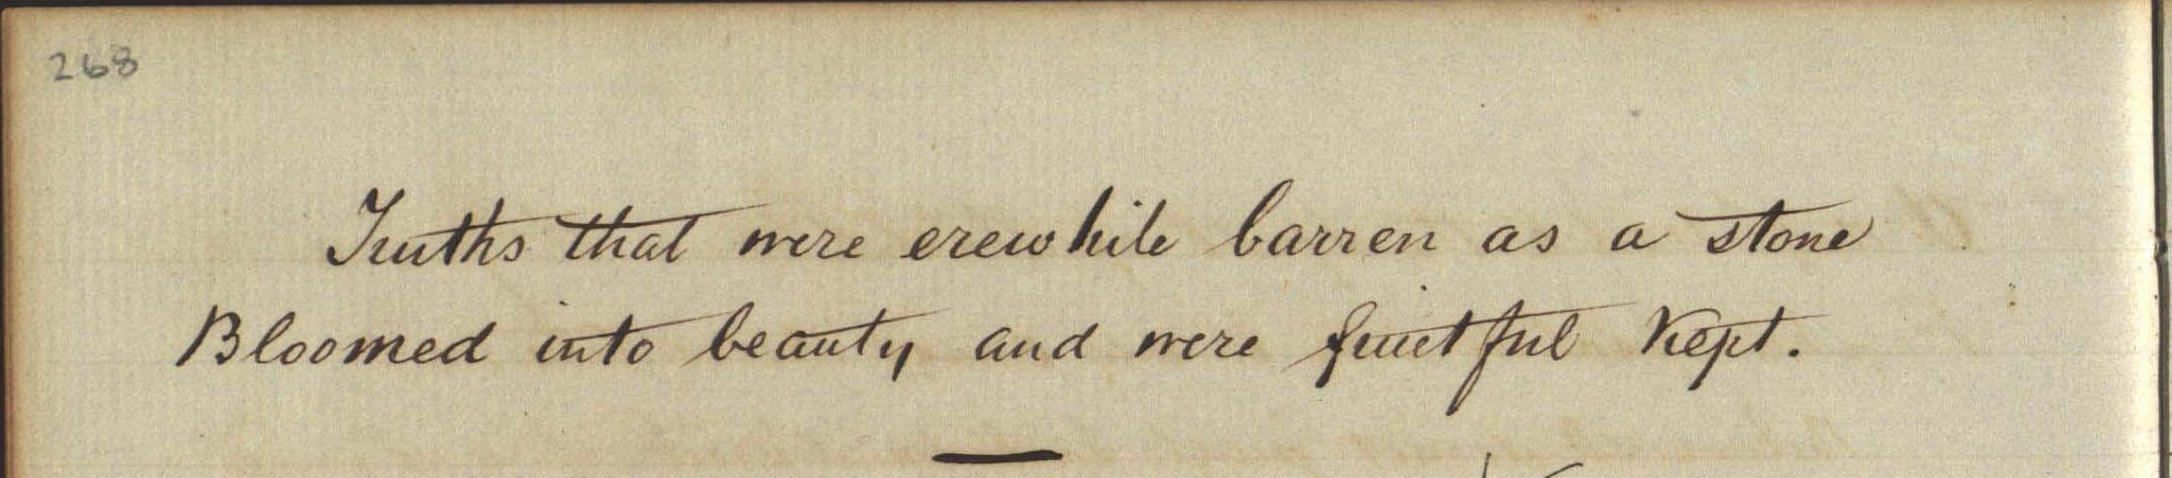 268
Truths that were erewhile barren as a stone
Bloomed into beauty and were fruitful kept.